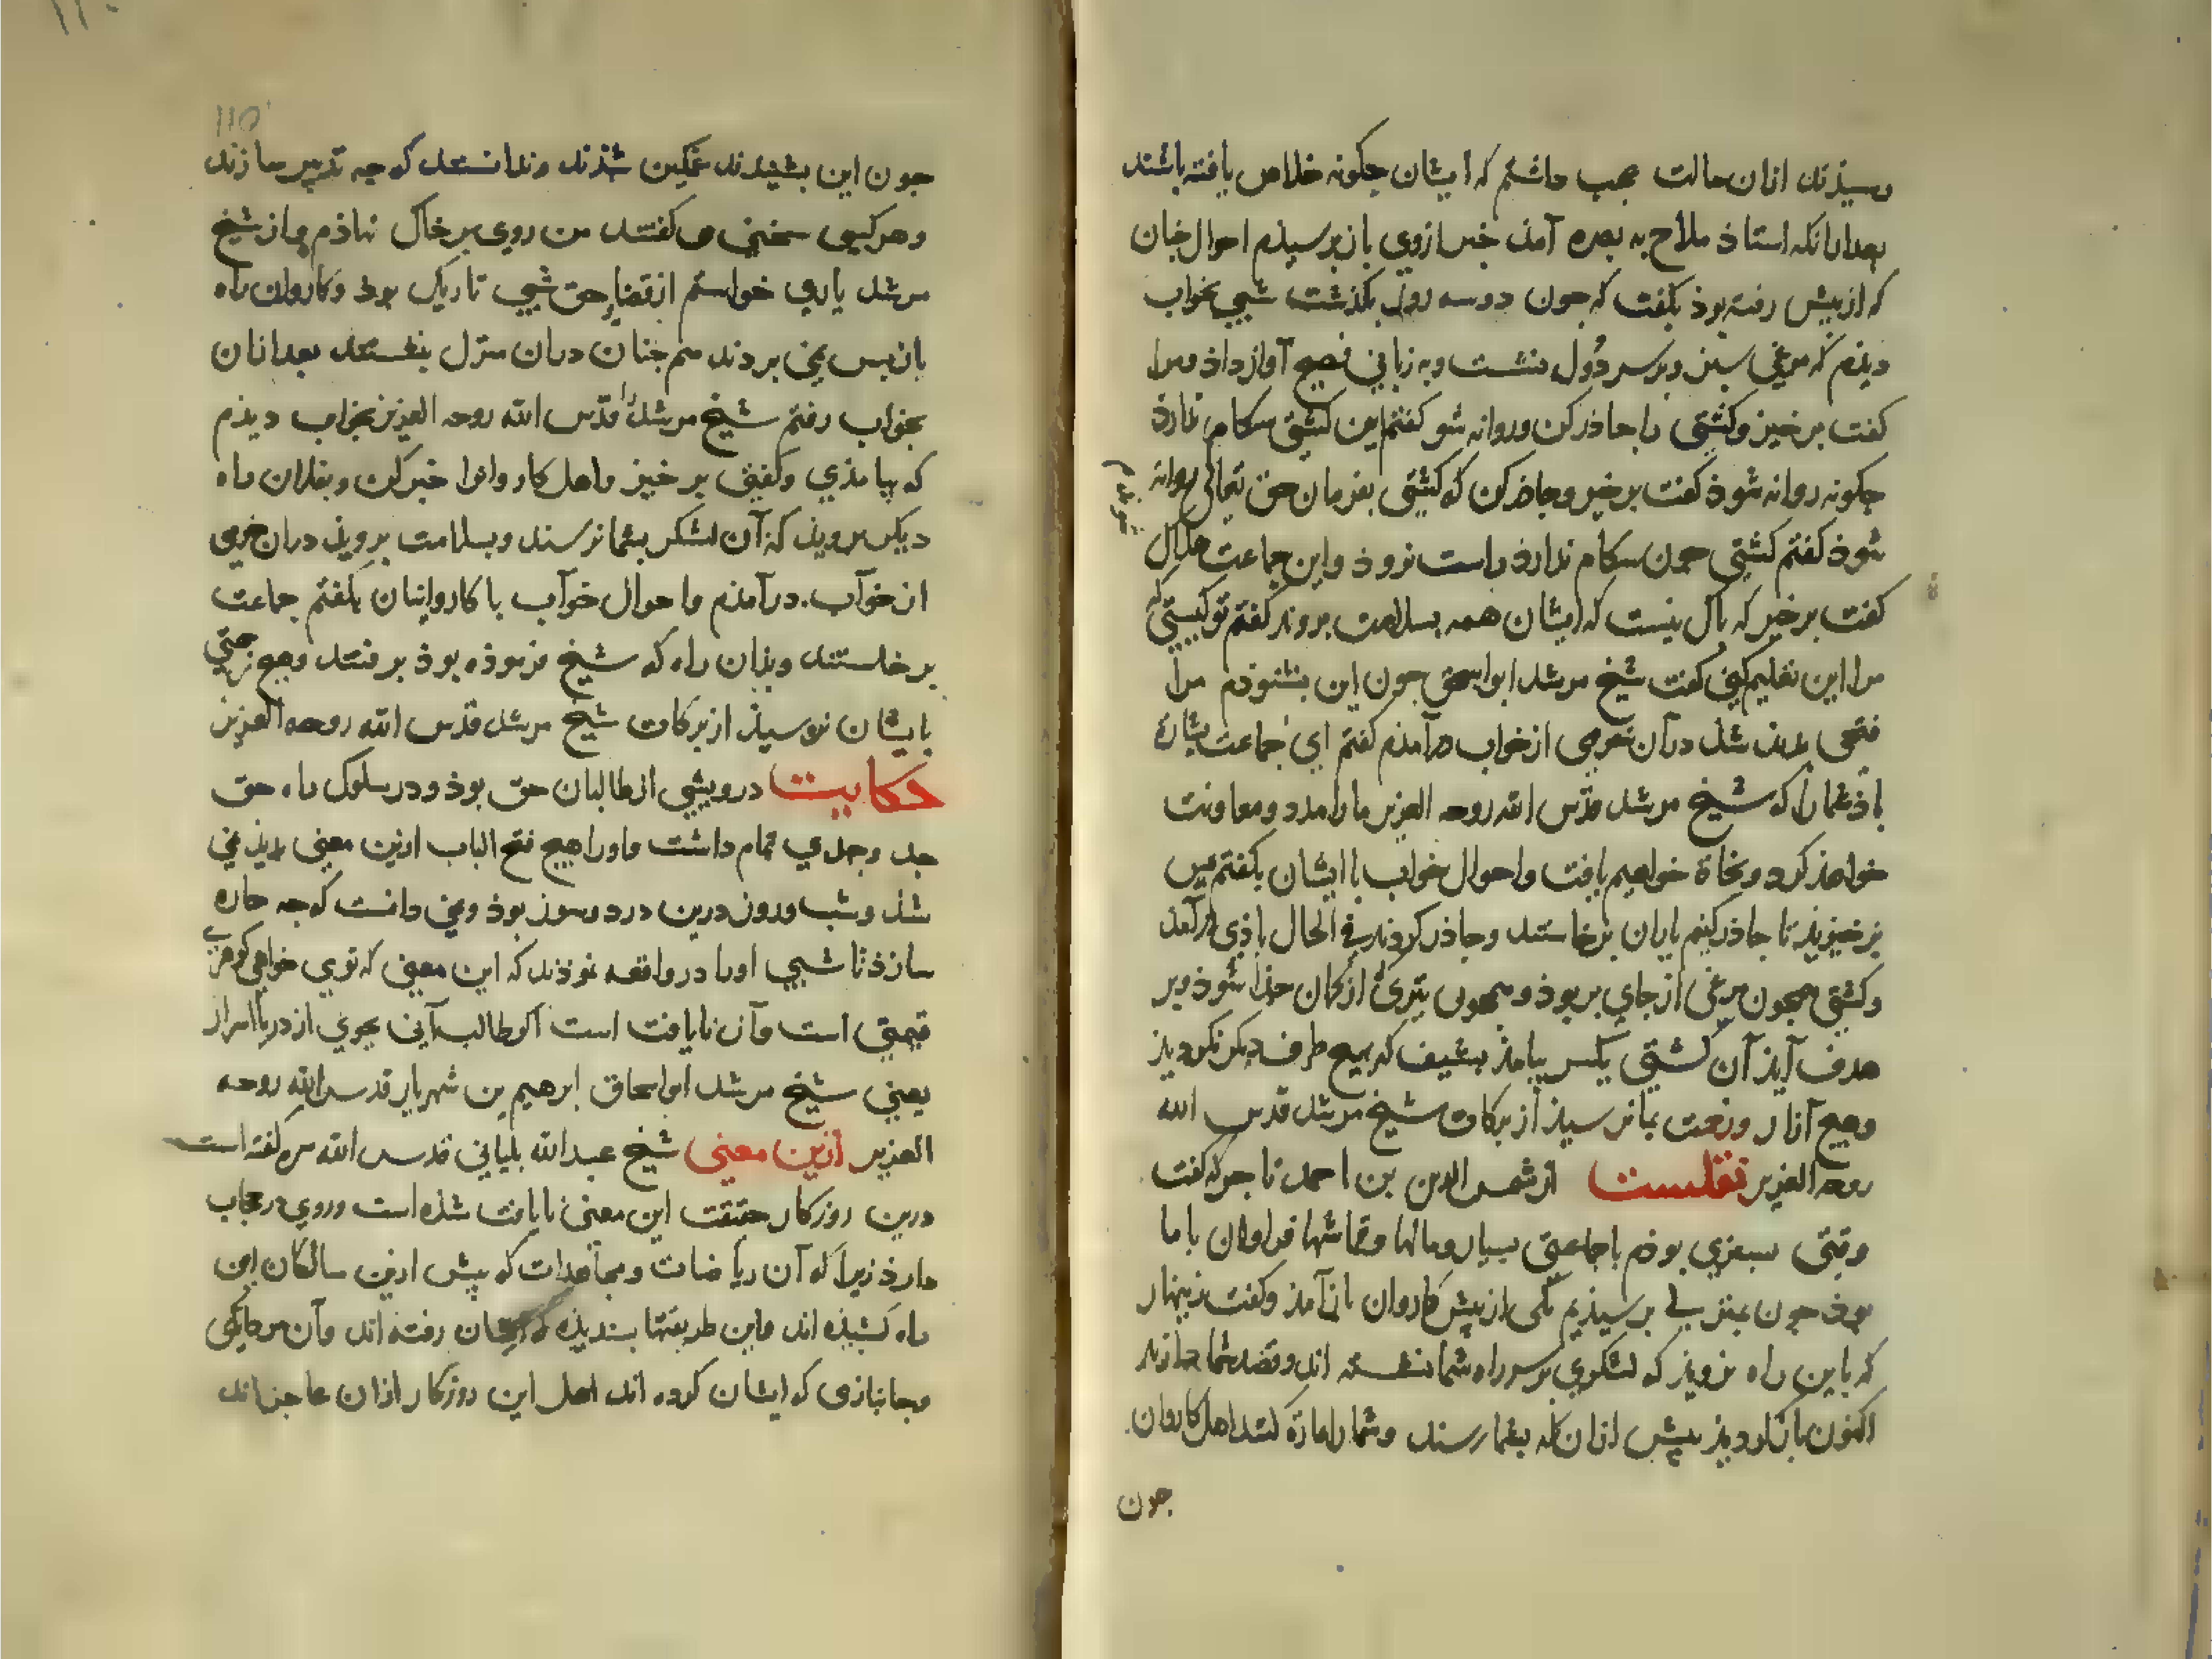 رسیذند ازان حالت عجب داشتم که ایشان چکونه خلاص یافته باشند
بعد ازانکه استاذ ملاح به بصره آمذ خبر ازوی باز پرسیذم احوال جنان
که از پیش رفته بوذ بکفت که جون دو سه روز بکذشت شبی بخواب
دیذم که مرغی سبز و بر سر دول نشست و به زبانی فصیح آواز داذ و مرا
کفت برخیز و کشتی را جاذر کن و روانه شو کفتم این کشتی سکام ندارد
جکونه روانه شوذ کفت برخیز و جاذر کن که کشتی بفرمان حق تعالی روانه
شوذ کفتم کشتی جون سکام ندارذ راست نروذ و این جماعت هلاک شوند
کفت برخیز که باک نیست که ایشان همه بسلامت بروند کفتم تو کیستی که
مرا این تعلیم کنی کفت شیخ مرشد ابواسحق جون این بشنوذم مرا
فتحی بدیذ شد در آن خرمی از خواب درآمذم کفتم ای جماعت بشارة
باذ شما را که شیخ مرشد قدس الله روحه العزیز ما را مدد و معاونت
خواهذ کرد و نجاة خواهیم یافت و احوال خواب با ایشان بکفتم پس
برخیزیذ تا جاذر کنیم یاران برخاستند و جاذر کردند فی الحال باذی درآمد
و کشتی همجون مرغی از جای بربوذ و همجون تیری از کمان جذا شوذ و بر
هدف آیذ آن کشتی یکسر بیامذ بشیف که بهیج طرف دیکر نکردیذ
و هیج آزار و زحمت بما نرسیذ از برکات شیخ مرشد قدس الله
روحه العزیز نقلست از شمس الدین بن احمد تاجر که کفت
وقتی بسفری بوذم با جماعتی بسیار و مالها و قماشها فراوان با ما
بوذ جون بمنزلی برسیذیم یکی از پیش کاروان باز آمذ و کفت زینهار
که باین راه مرویذ که لشکری بر سر راه شما نشسته اند و قصد شما دارند
اکنون باز کردیذ پیش ازان که بشما رسند و شما را غارة کنند اهل کاروان
جون
۱۱۵
جون این بشنیدند غمکین شذند و ندانستند که جه تدبیر سازند
و هر کسی سخنی می کفتند من روی بر خاک نهاذم و از شیخ
مرشد یاری خواستم از قضاء حق شبی تاریک بوذ و کاروان راه
باز پس نمی بردند هم جنان دران منزل بنشستند بعد ازان
بخواب رفتم شیخ مرشد را قدس الله روحه العزیز بخواب دیذم
که بیامذی و کفتی برخیز و اهل کاروانرا خبر کن و بفلان راه
دیکر برویذ که آن لشکر بشما نرسند و بسلامت برویذ دران خرمی
از خوآب درآمذم و احوال خوآب با کاروانیان بکفتم جماعت
برخاستند و بذان راه که شیخ فرموذه بوذ برفتند و هیج زحمتی
بایشان نرسیذ از برکات شیخ مرشد قدس الله روحه العزیز
حکایت درویشی از طالبان حق بوذ و در سلوک راه حق
جد و جهدی تمام داشت و او را هیج فتح الباب ازین معنی بدیذ نمی
شذ و شب و روز درین درد و سوز بوذ و نمی دانست که جه جاره
سازذ تا شبی او را در واقعه نموذند که این معنی که توی خواهی کوهری
قیمتی است و آن نایافت است اکر طالب آنی بجوی از دریا اسرار
یعنی شیخ مرشد ابواسحاق ابرهیم بن شهریار قدس الله روحه
العزیز ازین معنی شیخ عبدالله بلیانی قدس الله سره کفته است
درین روزکار حقیقت این معنی نایافت شده است و روی در حجاب
دارذ زیرا که آن ریاضات و مجاهدات که پیش ازین سالکان این
راه کشیذه اند و این طریقتها بسندیذه که ایشان رفته اند و آن مردانکی
و جانبازی که ایشان کرده اند اهل این روزکار ازان عاجزاند